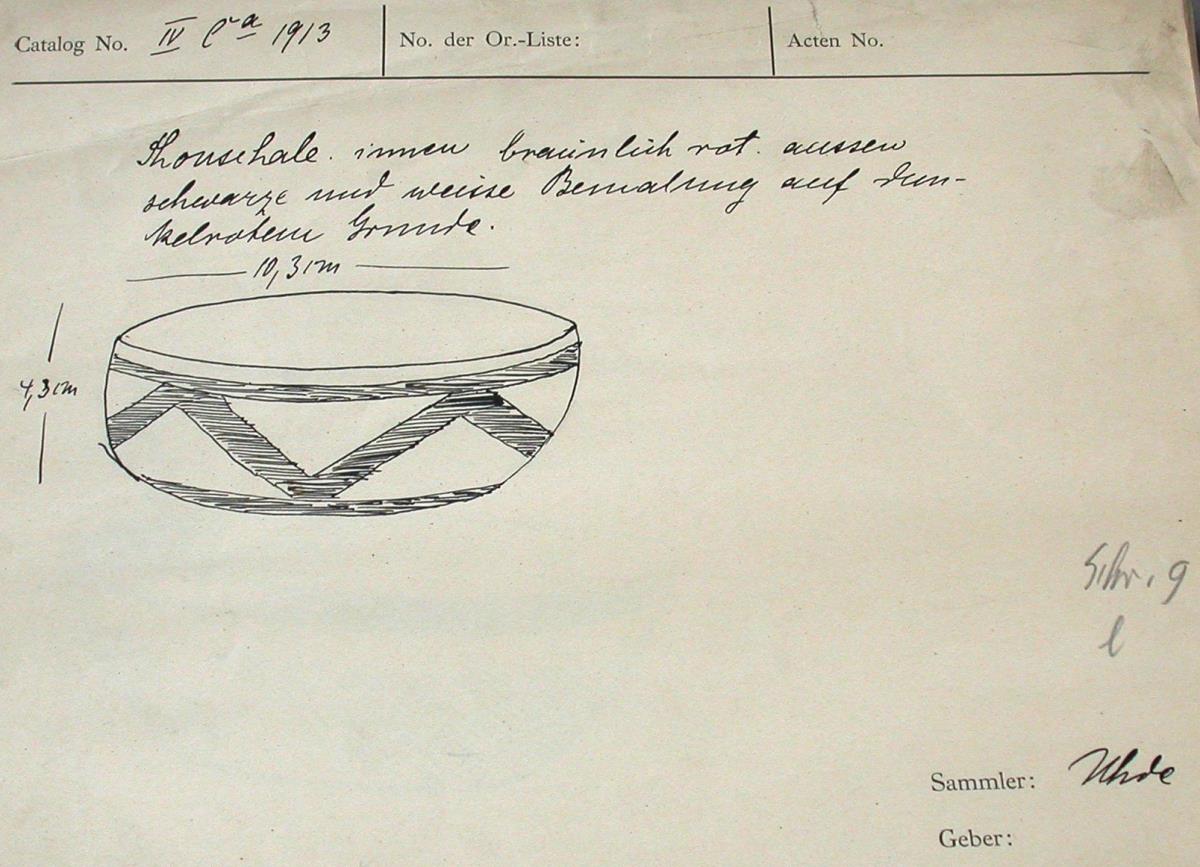 Catalog No. IV Ca 1913 No. der Or.-Liste: Acten No.
Thonschale. innen bräunlich rot. aussen
schwarze und weisse Bemalung auf dun-
kelrotem Grunde.
10,3 cm
4,3 cm
Schr. 9
l
Sammler: Uhde
Geber: